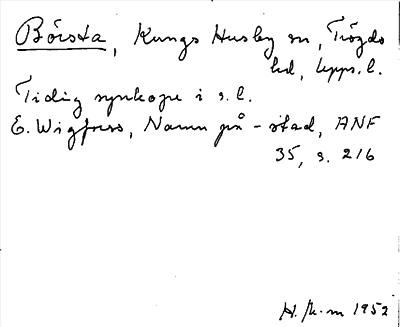 Börsta, Kungs Husby sn, Trögds
hd, Upps. l.
Tidig synkope i s. l.
E. Wigforss, Namn på -stad, ANF
35, s. 216
H. K-m 1952